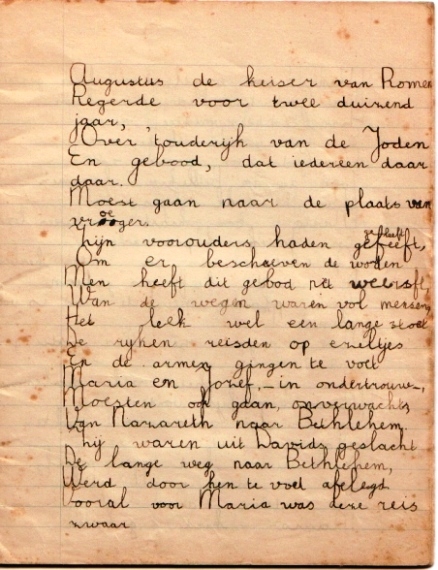 Augustus de keiser van Romen
Regerde voor twee duizend
jaar,
Over 'touderijk van de Joden
En gebood, dat iedereen daar
daar.
Moest gaan naar de plaats van
vroeger
Zijn voorouders hadden geleeft,
Om er beschreven de woden
Men heeft dit gebod niet weersft,
Wan de wegen waren vol mensen
Het leek wel een lange stoet
De ryken reisden op ezeltjes
En de armen gingen te voet
Maria en Jozef,_ in ondertrouw_,
Moesten ook gaan, onverwachts
Van Nazareth naar Bethlehem.
Zhij waren uit Davids geslacht
De lange weg naar Bethlehem,
Werd door hen te voet afelegd
vooral voor Maria was deze reis
zwaar